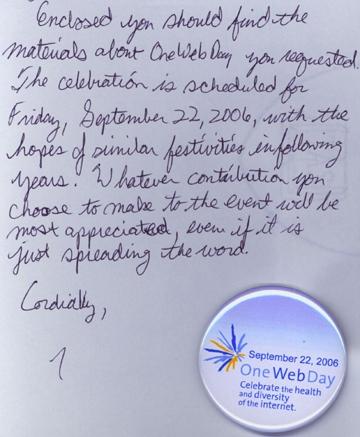 Enclosed you should find the
materials about OneWebDay you requested.
The celebration is scheduled for
Friday, September 22, 2006, with the
hopes of similar festivities in following
years. Whatever contribution you
choose to make to the event will be
most appreciated, even if it is
just spreading the word.
Cordially,
September 22, 2006
OneWebDay
Celebrate the health
and diversity
of the internet.